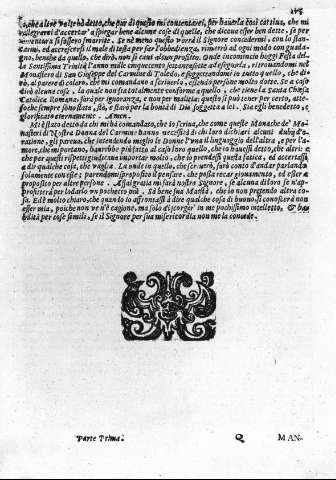 che altre volte hò detto, che pur di questo mi contenterei, per hauerla così cattiua, che mi
rallegrerei d'accertar' à spiegar bene alcune cose di quelle, che diceua esser ben dette. se per
auuentura si fossero smarrite. Se nè meno questo vorrà il Signore concedermi, con lo stan-
carmi, ed accrescersi il male di testa per far l'obbedienza, rimarrò ad ogni modo con guada-
gno, benche da quello, che dirò, non si caui alcun profitto. Quale incomincio hoggi Festa del-
la Santissima Trinità l'anno mille cinquecento settantasette, ritrouandomi nel
Monastero di San Giuseppe del Carmine di Toledo, e soggettandomi in tutto quello, che di-
rò, al parere di coloro, che mi comandano à scriuerlo, essendo persone molto dotte. Se à caso
dirò alcuna cosa, la quale non sia totalmente conforme à quello, che tiene la Santa Chiesa
Catolica Romana, sarà per ignoranza, e non per malitia: questo si può tener per certo, atte-
soche sempre sono stata, sto, e starò per la bontà di Dio soggetta à lei. Sia egli benedetto, e
glorificato eternamente. Amen.
Mi è stato detto da chi m'hà comandato, che io scriua, che come queste Monache de' Mo-
nasteri di Nostra Donna del Carmine hanno necessità di chi loro dichiari alcuni dubij d'o-
ratione, gli pareua, che intendendo meglio le Donne l'vna il linguaggio dell'altra, e per l'a-
more, che mi portano, haurebbe più fatto al caso loro quello, che io hauessi detto, che altri: e
che per questi rispetti giudicaua importar molto, che io prendessi questa fatica, ed accertassi
à dir qualche cosa, che vaglia. La onde io in quello, che scriuerò, farò conto d'andar parlando
solamente con esse; parendomi sproposito il pensare, che possa recar giouamento, ed esser à
proposito per altre persone. Assai gratia mi farà nostro Signore, se alcuna di loro se n'ap-
profitterà per lodarlo vn pochetto più. Sà bene sua Maestà, che io non pretendo altra co-
sa. Ed è molto chiaro, che quando io affrontassi à dir qualche cosa di buono, si conoscerà non
esser mia, poiche non ve n'è cagione, ma solo di scorger' in me pochissimo intelletto, & ha-
bilità per cose simili, se il Signore per sua misericordia non me la concede.
Parte Prima. Q MAN-